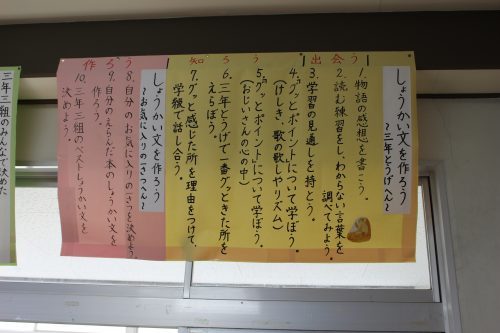 出会う
しょうかい文を作ろう
〜三年とうげへん〜
1.物語の感想を書こう。
2.読む練習をし、わからない言葉を
調べてみよう。
3.学習の見通しを持とう。
知ろう
4.「グッとポイント」について学ぼう。
(けしき、歌の歌しやリズム)
5.「グッとポイント」について学ぼう。
(おじいさんの心の中)
6.三年とうげで一番グッときた所を
えらぼう。
7.グッと感じた所を理由をつけて、
学級で話し合う。
作ろう
しょうかい文を作ろう
〜お気に入りの一さつへん〜
8.自分のお気に入りの一さつを決めよう。
9.自分のえらんだ本のしょうかい文を
作ろう。
10.三年三組のベストしょうかい文を
決めよう。
三年三組のみんなで決めた